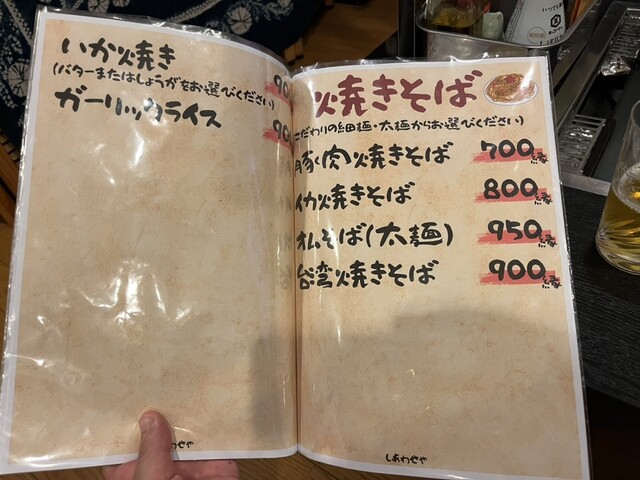 いか焼き
(バターまたはしょうがをお選びください)
90
ガーリックライス
90
わせや
焼きそば
こだわりの細麺・太麺からお選びください)
豚(肉)焼きそば 700縁
イカ焼きそば 800縁
オムそば(太麺) 950縁
台湾焼きそば 900縁
しあわせや